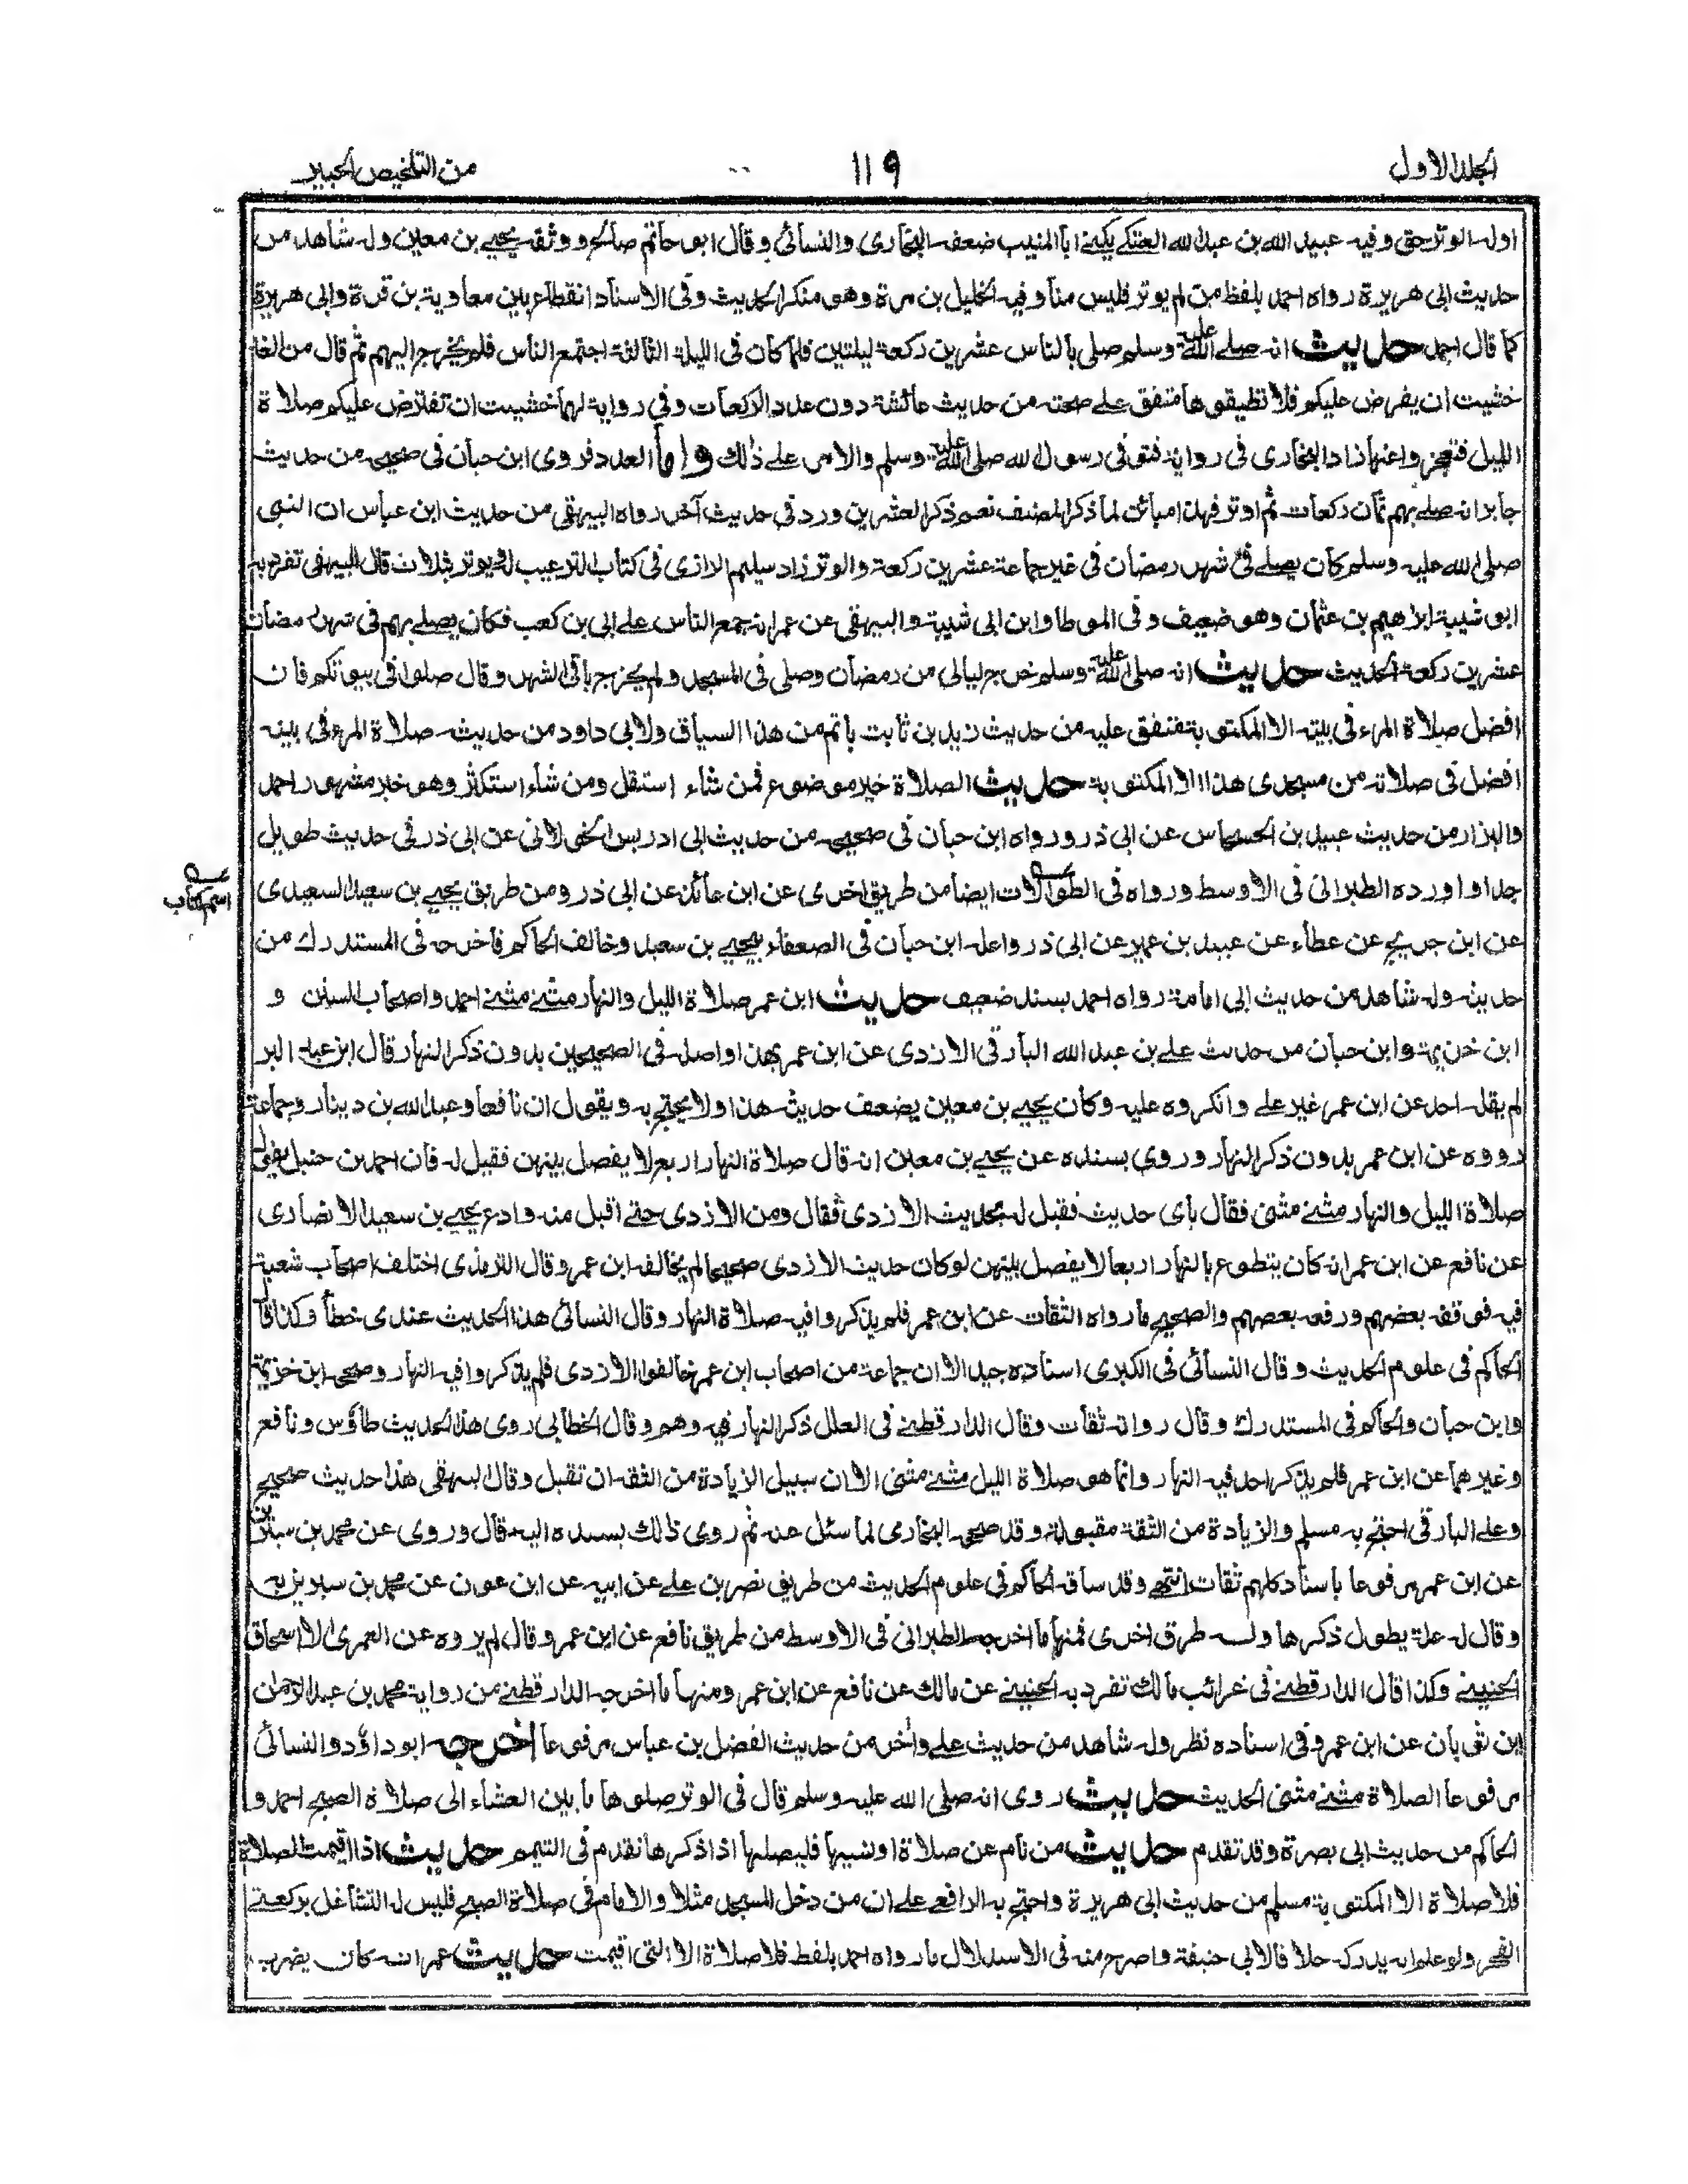 الجلد الاول ١١٩ من التلخيص الحبير
اوله الوتر حق وفيه عبيد الله بن عبد الله العتكى يكنى ابا المنيب ضعفه البخارى والنسائى وقال ابو حاتم صالح ووثقه يحيى بن معين وله شاهد من
حديث ابى هريرة رواه احمد بلفظ من لم يوتر فليس منا وفيه الخليل بن مرة وهو منكر الحديث وفى الاسناد انقطاع بين معاوية بن قرة وابى هريرة
كما قال احمد حديث انه صلى الله عليه وسلم صلى بالناس عشرين ركعة ليلتين فلما كان فى الليلة الثالثة اجتمع الناس فلم يخرج اليهم ثم قال من الغد
خشيت ان يفرض عليكم فلا تطيقوها متفق على صحته من حديث عائشة دون عدد الركعات وفى رواية لهما خشيت ان تفترض عليكم صلاة
الليل فتعجزوا عنها زاد البخارى فى رواية فتوفى رسول الله صلى الله عليه وسلم والامر على ذلك واما العدد فروى ابن حبان فى صحيحه من حديث
جابر انه صلى بهم ثمان ركعات ثم اوتر فهذا مبائن لما ذكر المصنف نعم ذكر العشرين ورد فى حديث آخر رواه البيهقى من حديث ابن عباس ان النبى
صلى الله عليه وسلم كان يصلى فى شهر رمضان فى غير جماعة عشرين ركعة والوتر زاد سليم الرازى فى كتاب الترغيب له ويوتر بثلاث قال البيهقى تفرد به
ابو شيبة ابراهيم بن عثمان وهو ضعيف وفى الموطا وابن ابى شيبة والبيهقى عن عمر انه جمع الناس على ابى بن كعب فكان يصلى بهم فى شهر رمضان
عشرين ركعة الحديث حديث انه صلى الله عليه وسلم خرج ليالى من رمضان وصلى فى المسجد ولم يخرج باقى الشهر وقال صلوا فى بيوتكم فان
افضل صلاة المرء فى بيته الا المكتوبة متفق عليه من حديث زيد بن ثابت باتم من هذا السياق ولابى داود من حديثه صلاة المرء فى بيته
افضل فى صلاته من مسجدى هذا الا المكتوبة حديث الصلاة خير موضوع فمن شاء استقل ومن شاء استكثر وهو خبر مشهور احمد
والبزار من حديث عبيد بن الحسحاس عن ابى ذر ورواه ابن حبان فى صحيحه من حديث ابى ادريس الخولانى عن ابى ذر فى حديث طويل
جدا واورده الطبرانى فى الاوسط ورواه فى الطوالات ايضا من طريق اخرى عن ابن عائذ عن ابى ذر ومن طريق يحيى بن سعيد السعيدى
اسم كتاب
عن ابن جريج عن عطاء عن عبيد بن عمير عن ابى ذر واعله ابن حبان فى الضعفاء بيحيى بن سعيد وخالف الحاكم فاخرجه فى المستدرك من
حديثه وله شاهد من حديث ابى امامة رواه احمد بسند ضعيف حديث ابن عمر صلاة الليل والنهار مثنى مثنى احمد واصحاب السنن و
ابن خزيمة وابن حبان من حديث على بن عبد الله البارقى الازدى عن ابن عمر بهذا واصله فى الصحيحين بدون ذكر النهار قال ابن عبد البر
لم يقله احد عن ابن عمر غير على وانكروه عليه وكان يحيى بن معين يضعف حديثه هذا ولا يحتج به ويقول ان نافعا وعبد الله بن دينار وجماعة
رووه عن ابن عمر بدون ذكر النهار وروى بسنده عن يحيى بن معين انه قال صلاة النهار اربع لا يفصل بينهن فقيل له فان احمد بن حنبل يقول
صلاة الليل والنهار مثنى مثنى فقال باى حديث فقيل له بحديث الازدى فقال ومن الازدى حتى اقبل منه وادع يحيى بن سعيد الانصارى
عن نافع عن ابن عمر انه كان يتطوع بالنهار اربعا لا يفصل بينهن لو كان حديث الازدى صحيحا لم يخالفه ابن عمر وقال الترمذى اختلف اصحاب شعبة
فيه فوقفه بعضهم ورفعه بعضهم والصحيح ما رواه الثقات عن ابن عمر فلم يذكروا فيه صلاة النهار وقال النسائى هذا الحديث عندى خطأ وكذا قال
الحاكم فى علوم الحديث وقال النسائى فى الكبرى اسناده جيد الا ان جماعة من اصحاب ابن عمر خالفوا الازدى فلم يذكروا فيه النهار وصححه ابن خزيمة
وابن حبان والحاكم فى المستدرك وقال رواته ثقات وقال الدارقطنى فى العلل ذكر النهار فيه وهم وقال الخطابى روى هذا الحديث طاؤس ونافع
وغيرهما عن ابن عمر فلم يذكر احد فيه النهار وانما هو صلاة الليل مثنى مثنى الا ان سبيل الزيادة من الثقة ان تقبل وقال البيهقى هذا حديث صحيح
وعلى البارقى احتج به مسلم والزيادة من الثقة مقبولة وقد صححه البخارى لما سئل عنه ثم روى ذلك بسنده اليه قال وروى عن محمد بن سيرين
عن ابن عمر مرفوعا باسناد كلهم ثقات انتهى وقد ساقه الحاكم فى علوم الحديث من طريق نصر بن على عن ابيه عن ابن عون عن محمد بن سيرين به
وقال له علة يطول ذكرها وله طرق اخرى فمنها ما اخرجه الطبرانى فى الاوسط من طريق نافع عن ابن عمر وقال لم يروه عن العمرى الا اسحاق
الحنينى وكذا قال الدارقطنى فى غرائب مالك تفرد به الحنينى عن مالك عن نافع عن ابن عمر ومنها ما اخرجه الدارقطنى من رواية محمد بن عبد الرحمن
ابن ثوبان عن ابن عمر وفى اسناده نظر وله شاهد من حديث على وآخر من حديث الفضل بن عباس مرفوعا اخرجه ابو داؤد والنسائى
مرفوعا الصلاة مثنى مثنى الحديث حديث روى انه صلى الله عليه وسلم قال فى الوتر صلوها ما بين العشاء الى صلاة الصبح احمد و
الحاكم من حديث ابى بصرة وقد تقدم حديث من نام عن صلاة او نسيها فليصلها اذا ذكرها تقدم فى التيمم حديث اذا اقيمت الصلاة
فلا صلاة الا المكتوبة مسلم من حديث ابى هريرة واحتج به الرافعى على ان من دخل المسجد مثلا والامام فى صلاة الصبح فليس له التشاغل بركعتى
الفجر ولو علم انه يدركه خلافا لابى حنيفة واصرح منه فى الاستدلال ما رواه احمد بلفظ فلا صلاة الا التى اقيمت حديث عمر انه كان يضرب